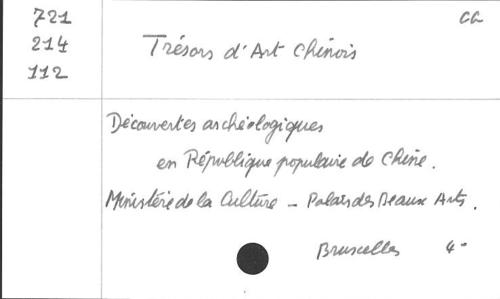 721
214
112
CG
Trésors d'Art Chinois
Découvertes archéologiques
en République populaire de Chine.
Ministère de la Culture - Palais des Beaux Arts.
Bruxelles 4°